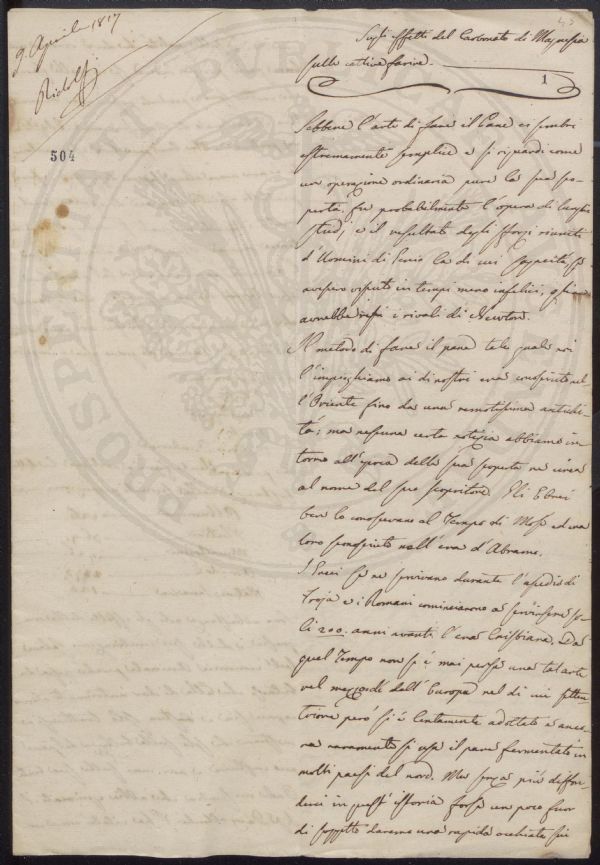 9. Aprile 1817
Ridolfi
504
Sugli effetti del Carbonato di Magnesia
sulle cattive farine.
1
Sebbene l'arte di fare il Pane ci sembri
estremamente semplice e si riguardi come
un operazione ordinaria pure la sua sco-
perta fu probabilmente l'opera di lunghi
studj, e il resultato degli sforzi riuniti
d'Uomini di Genio la di cui sagacità, se
avessero vissuto in tempi meno infelici, gli
avrebbe resi i rivali di Newton.
Il metodo di fare il pane tale quale noi
l'impieghiamo ai dì nostri era conosciuto nel-
l'Oriente fino da una remotissima antichi-
tà; ma nessuna certa notizia abbiamo in-
torno all'epoca della sua scoperta nè circa
al nome del suo scopritore. Gli Ebrei
ben lo conoscevano al Tempo di Mosè ed era
loro sconosciuto nell'era d'Abramo.
I Greci se ne servivano durante l'assedio di
Troja e i Romani cominciarono a servirsene so-
li 200. anni avanti l'era Cristiana. Da
quel Tempo non si è mai persa una tal arte
nel mezzodì dell'Europa nel di cui setten-
trione però si è lentamente adottata e anco-
ra raramente si usa il pane fermentato in
molti paesi del nord. Ma senza più diffon-
derci in quest'istoria forse un poco fuor
di soggetto daremo una rapida occhiata sui